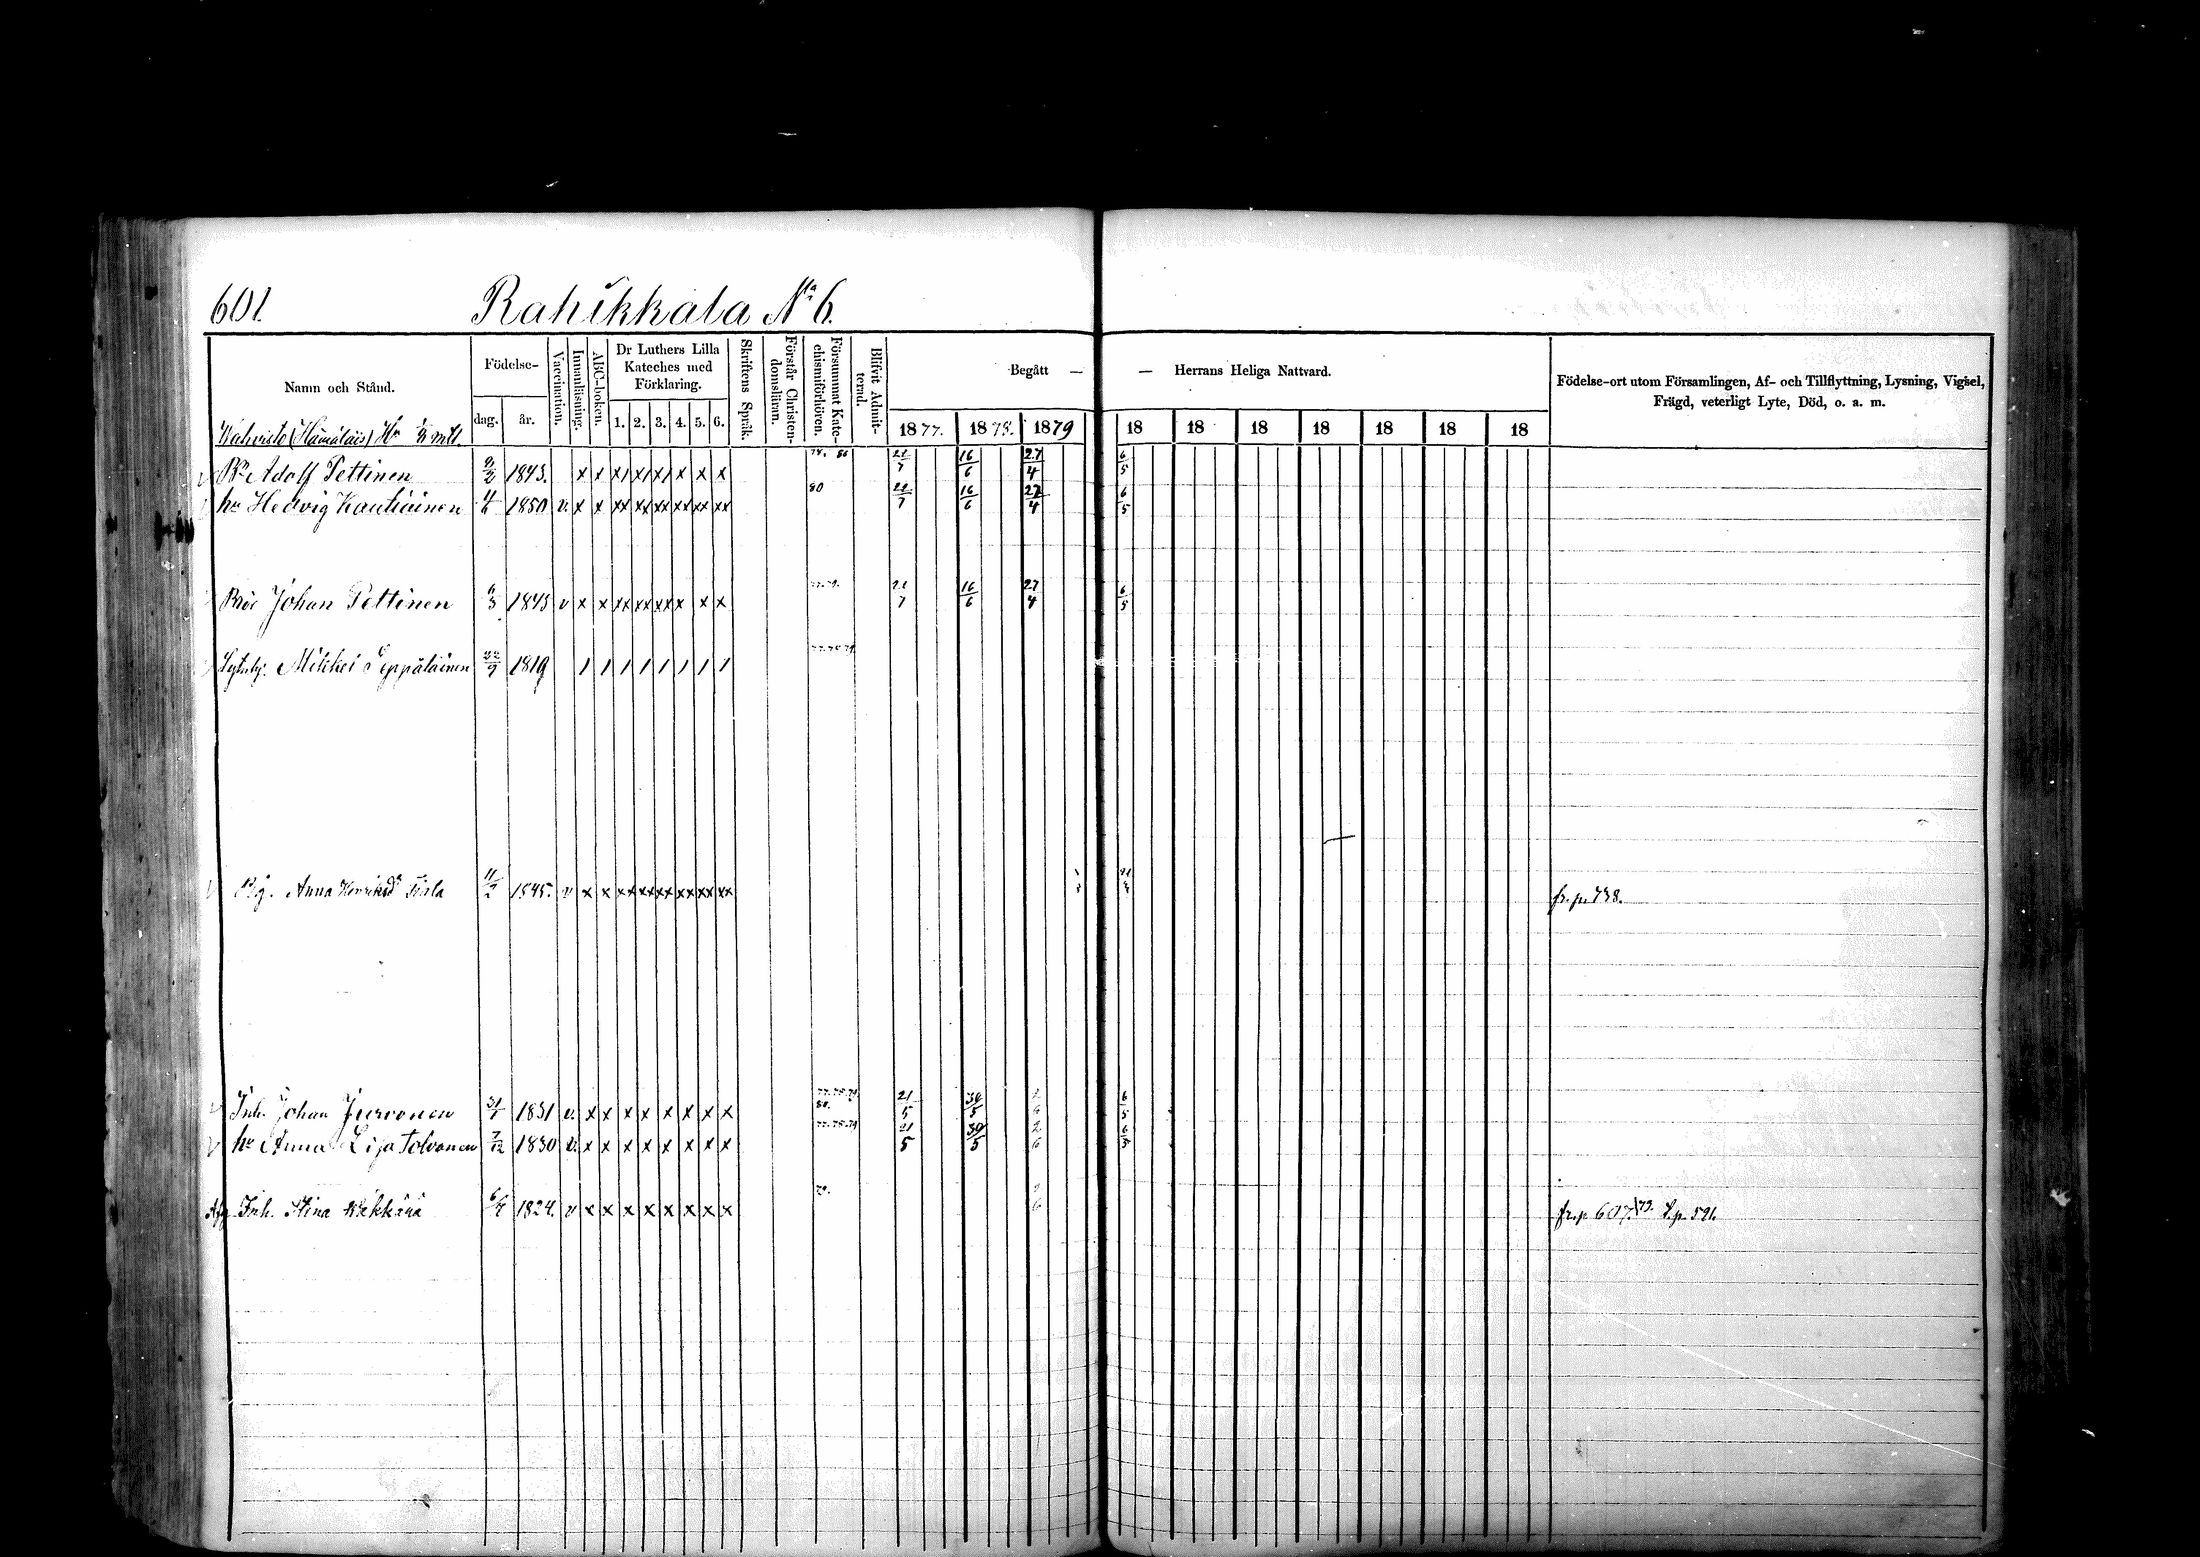 601. Rahikkala No 6.
Namn och Stånd.
Födelse-
dag. år.
Vaccination.
Innanläsning.
ABC-boken.
Dr Luthers Lilla Kateches med Förklaring.
1. 2. 3. 4. 5. 6.
Skriftens Språk.
Förstår Christendomsläran.
Försummat Katechismiförhören.
Blifvit Admitterad.
Begått — — Herrans Heliga Nattvard.
1877. 1878. 1879 18 18 18 18 18 18 18
Födelse-ort utom Församlingen, Af- och Tillflyttning, Lysning, Vigsel,
Frägd, veterligt Lyte, Död, o. a. m.
(Hämäläis)
Adolf Pettinen 1843. x x x x x x x x 21/7 16/6 27/4 6/5
hu Hedvig Kautiainen 1850 v. x x xx xx xx xx xx xx 80 21/7 16/6 27/4 6/5
Johan Pettinen 6/3 1843 v x x xx xx xx x x x 21/7 16/6 27/4 6/5
Mikkel Seppäläinen 22/9 1819 / / / / / / / / 77.78.79
Anna Henriksd 1845. v x x xx xx xx xx xx xx fr. p. 738.
Inh. Johan Jurvonen 31/1 1831 v. x x x x x x x x 77.78.79 80. 21/5 30/5 2/6 6/5
hu Anna Lisa Tolvanen 7/12 1830 v. x x x x x x x x 77.78.79 21/5 30/5 2/6 6/5
Inh. Stina 1824. v x x x x x x x x 79. 2/6 fr. p 607. 79.